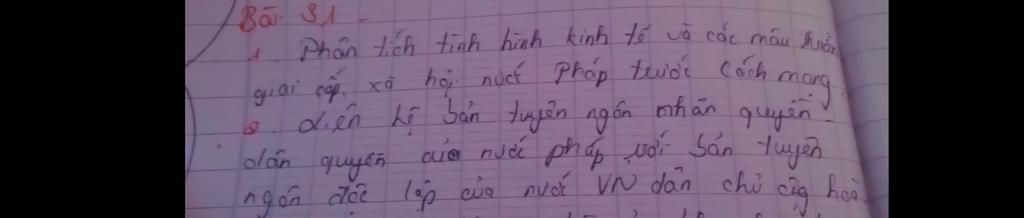 Bài 31
1. Phân tích tình hình kinh tế và các mâu thuẫn
giai cấp, xã hội nước Pháp trước cách mạng.
2. Liên hệ bản tuyên ngôn nhân quyền
dân quyền của nước pháp với bản tuyên
ngôn độc lập của nước VN dân chủ cộg hoà